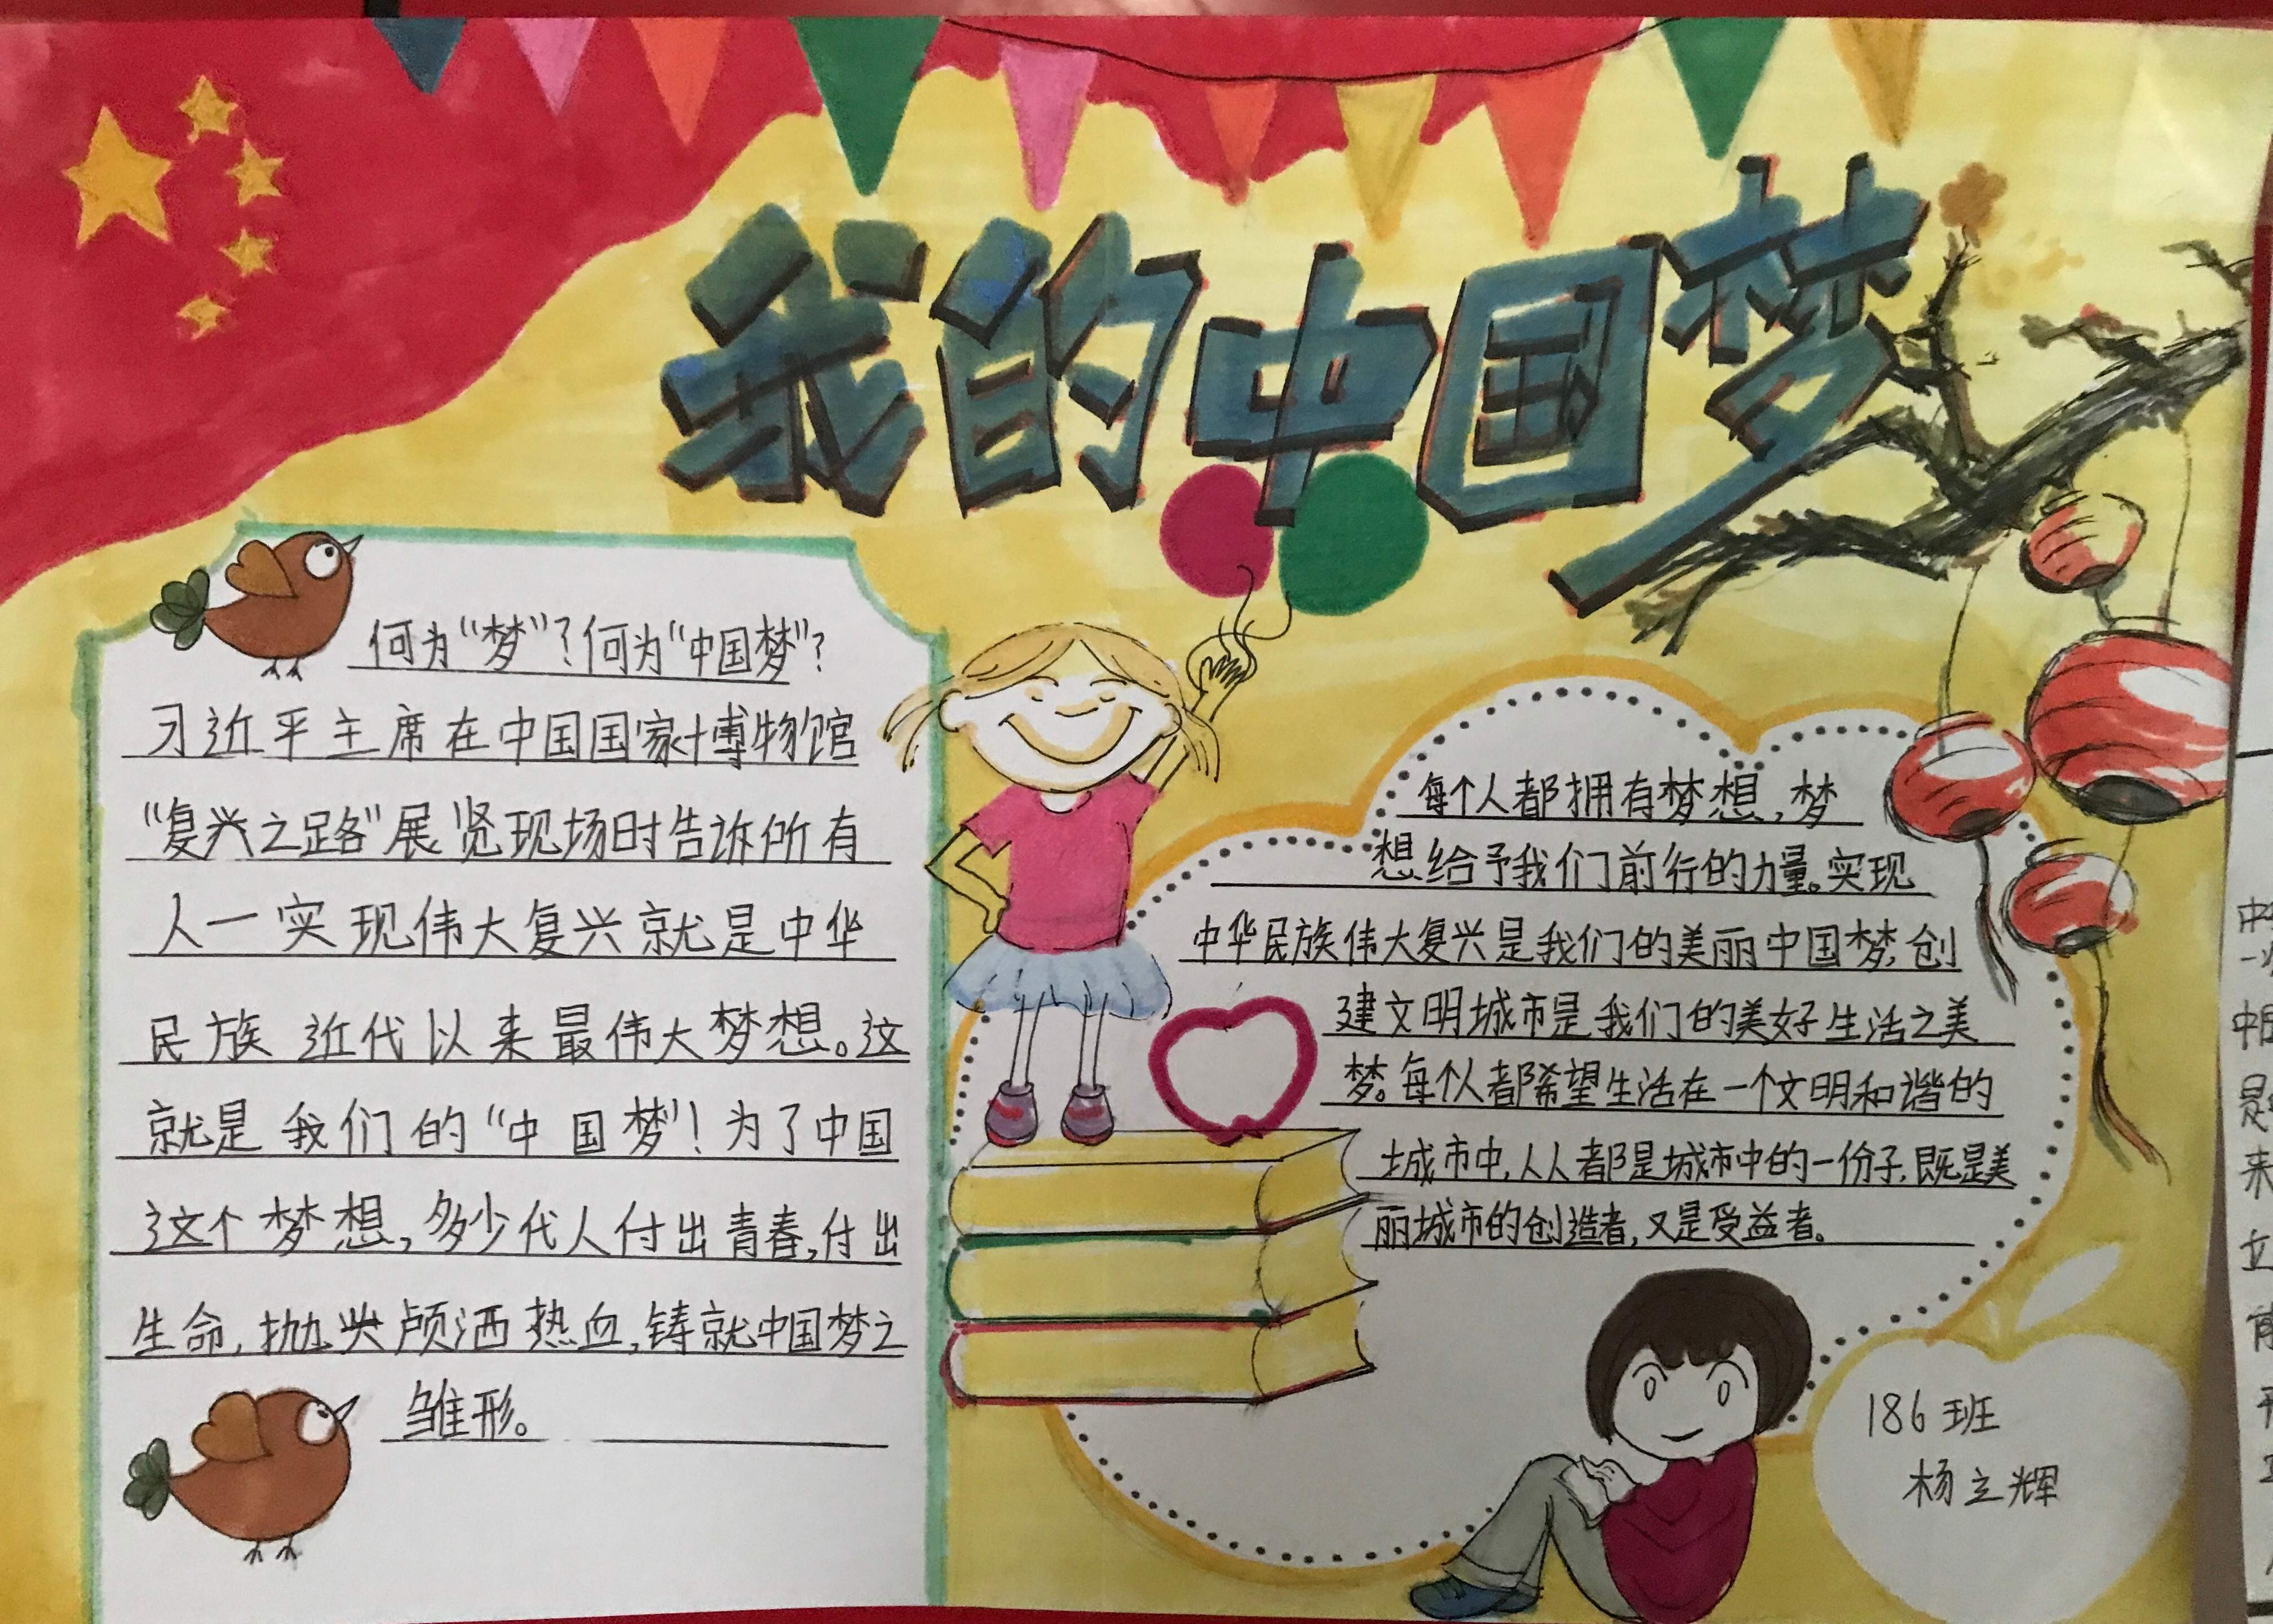 我的中国梦
何为“梦”?何为“中国梦”?
习近平主席在中国国家博物馆
“复兴之路”展览现场时告诉所有
人一实现伟大复兴就是中华
民族近代以来最伟大梦想。这
就是我们的“中国梦”!为了中国
这个梦想,多少代人付出青春,付出
生命,抛头颅洒热血,铸就中国梦之
雏形。
每个人都拥有梦想,梦
想给予我们前行的力量。实现
中华民族伟大复兴是我们的美丽中国梦,创
建文明城市是我们的美好生活之美
梦。每个人都希望生活在一个文明和谐的
城市中,人人都是城市中的一份子,既是美
丽城市的创造者,又是受益者。
186班
杨立辉